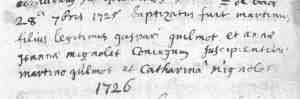 28ª 7bris 1725 baptizatus fuit martinus
filius legitimus gaspari quilmot et annæ
joannæ mignolet conjugum suscipientibus
martino quilmot et Catharina mignolet
1726